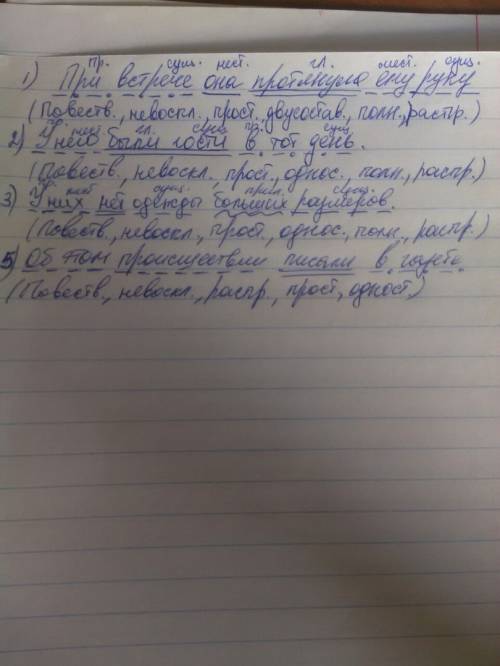 пр. сущ. мест. гл. мест. сущ.
1) При встрече она протянула ему руку
(Повеств., невоскл., прост., двусостав., полн., распр.)
гл. сущ. пр. сущ.
2) У него были гости в тот день.
(Повеств., невоскл., прост., однос., полн., распр.)
сущ. прил. сущ.
3) У них нет одежды больших размеров.
(Повеств., невоскл., прост., однос., полн., распр.)
5) Об этом происшествии писали в газете
(Повеств., невоскл., распр., прост., одност.)